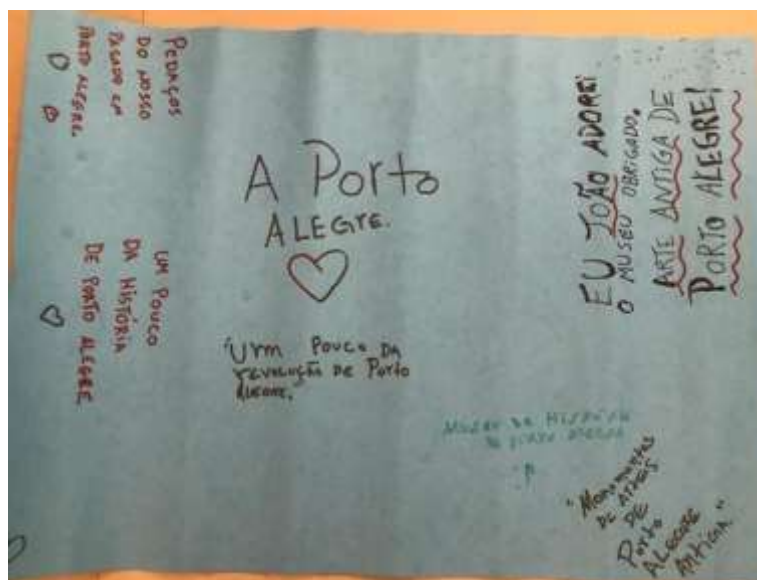 PEDAÇOS
DO NOSSO
PASADO EM
PORTO ALEGRE.
UM POUCO
DA HISTÓRIA
DE PORTO ALEGRE
A Porto
ALEGrE.
"Um POUCO DA
revolução DE Porto
ALEGRE.
EU JOÃO ADOREI
O MUSEU OBRIGADO.
ARTE ANTIGA DE
PORTO ALEGRE!
MUSEU DA HISTÓRIA
DE PORTO ALEGRE
"Monumentos
DE
DE
Porto
ALEGRE
ANTIGA."